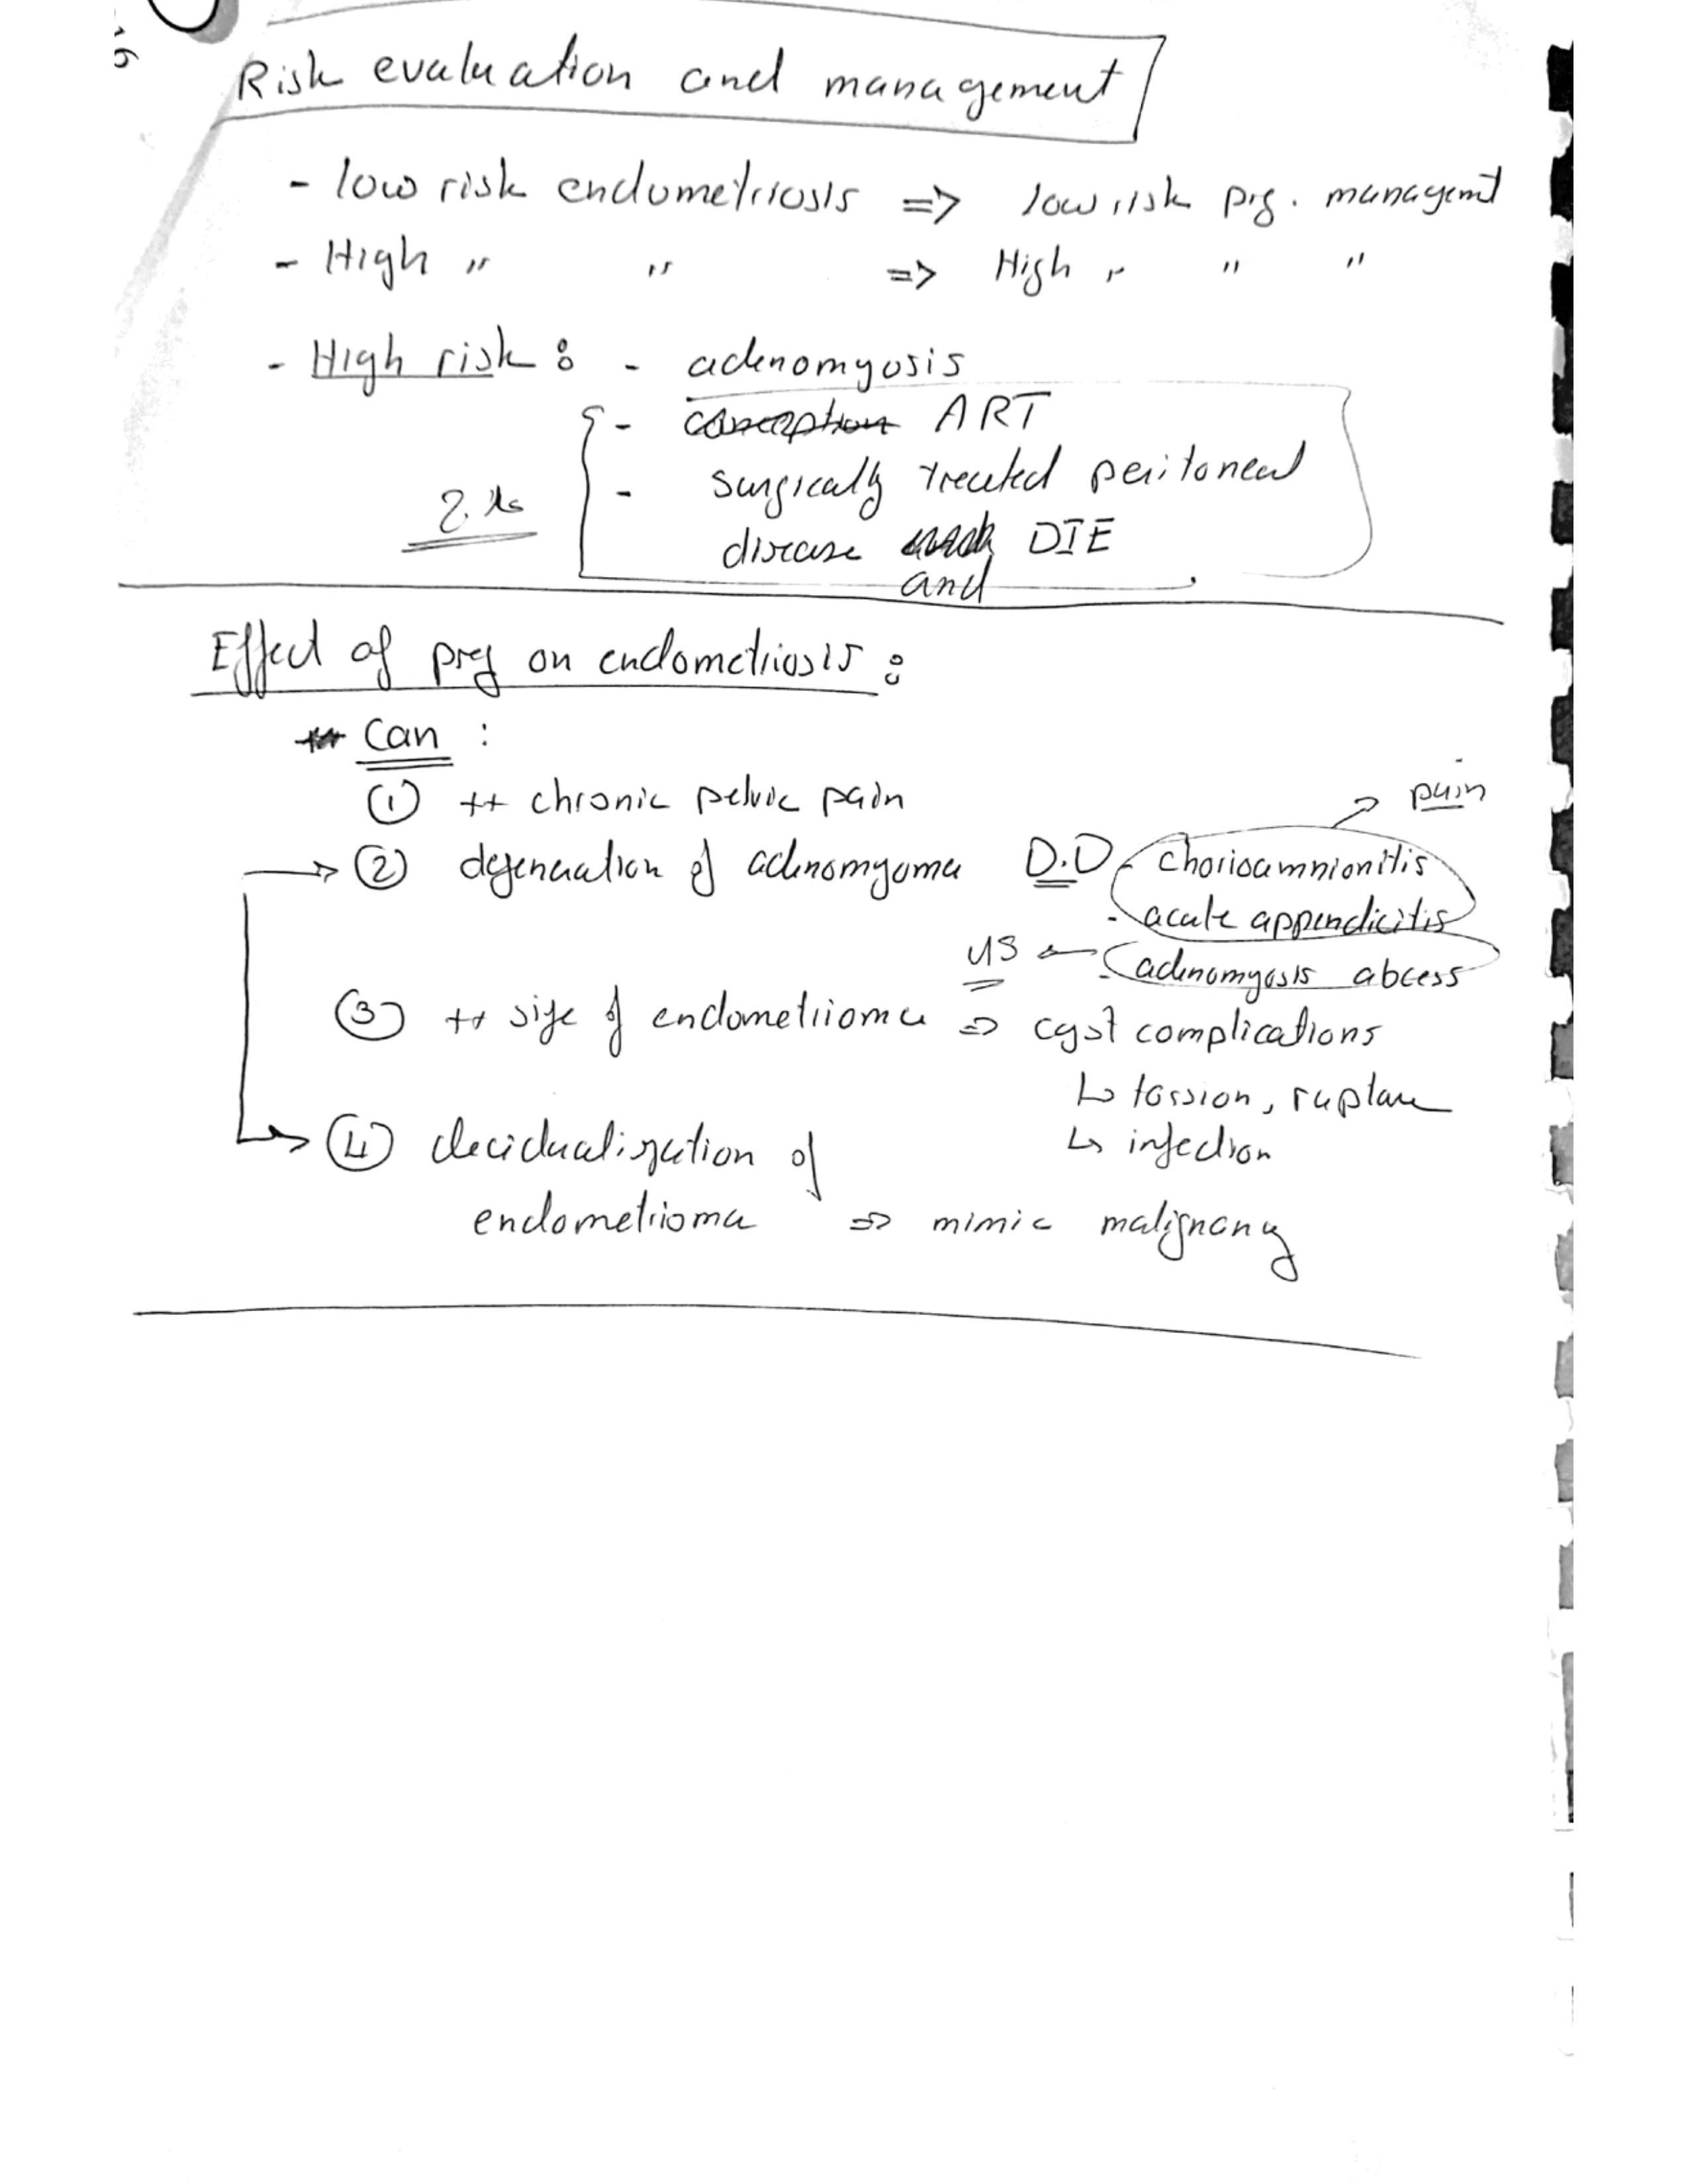 Risk evaluation and management
- low risk endometriosis => low risk prg. managemt
- High " " => High " " "
- High risk : - adenomyosis
- conception ART
- surgically treated peritoneal
disease DIE
and
Effect of preg on endometriosis :
Can :
① ++ chronic pelvic pain
pain
→ ② degeneration of adenomyoma D.D - chorioamnionitis
- acute appendicitis
US ← - adenomyosis abcess
③ ++ size of endometrioma => cyst complications
↳ torsion, rupture
↳ infection
④ decidualization of
endometrioma => mimic malignany